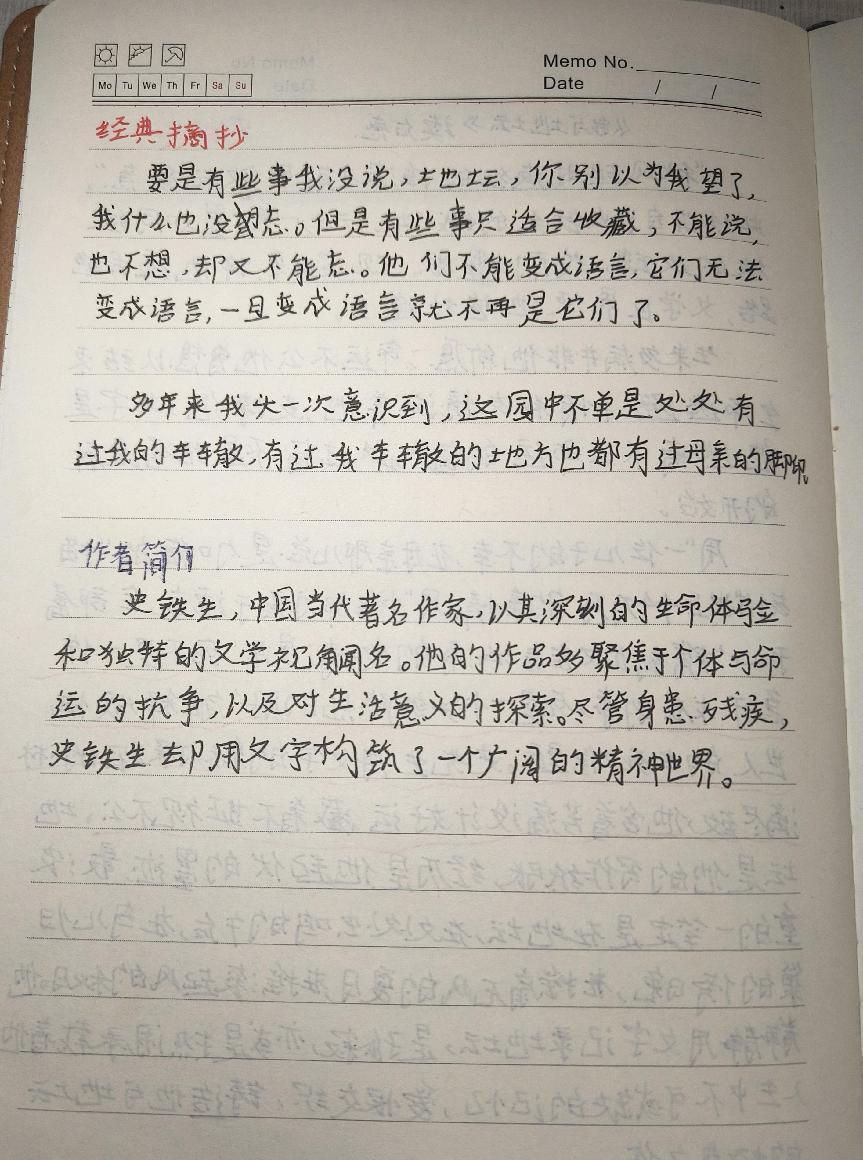 Memo No.
Mo Tu We Th Fr Sa Su
Date / /
经典摘抄
要是有些事我没说，地坛，你别以为我望了，
我什么也没忘。但是有些事只适合收藏，不能说，
也不想，却又不能忘。他们不能变成语言，它们无法
变成语言，一旦变成语言就不再是它们了。
多年来我头一次意识到，这园中不单是处处有
过我的车辙，有过我车辙的地方也都有过母亲的脚印。
作者简介
史铁生，中国当代著名作家，以其深刻的生命体验
和独特的文学视角闻名。他的作品多聚焦于个体与命
运的抗争，以及对生活意义的探索。尽管身患残疾，
史铁生却用文字构筑了一个广阔的精神世界。